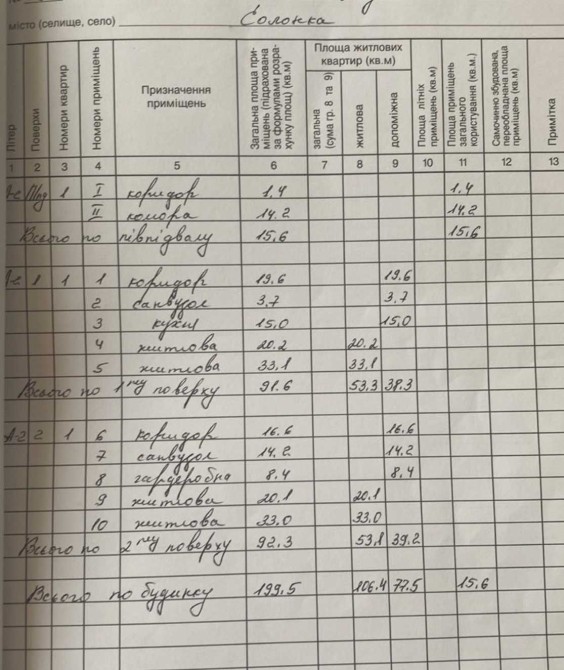 місто (селище, село) Солонка
Літер
Поверхи
Номери квартир
Номери приміщень
Призначення приміщень
Загальна площа приміщень (підрахована за формулами розрахунку площ) (кв.м)
Площа житлових квартир (кв.м)
загальна (сума гр. 8 та 9)
житлова
допоміжна
Площа літніх приміщень (кв.м)
Площа приміщень загального користування (кв.м.)
Самочинно збудована, переобладнана площа приміщень (кв.м)
Примітка
1 2 3 4 5 6 7 8 9 10 11 12 13
П/пд 1 I коридор 1,4 1,4
II комора 14.2 14.2
Всього по півпідвалу 15,6 15,6
1 1 1 коридор 19.6 19.6
2 санвузол 3,7 3,7
3 кухня 15,0 15,0
4 житлова 20.2 20.2
5 житлова 33,1 33,1
Всього по 1му поверху 91.6 53,3 38,3
А-2 2 1 6 коридор 16.6 16.6
7 санвузол 14,2 14,2
8 гардеробна 8,4 8,4
9 житлова 20,1 20,1
10 житлова 33,0 33,0
Всього по 2му поверху 92,3 53,1 39,2
Всього по будинку 199,5 106.4 77.5 15,6